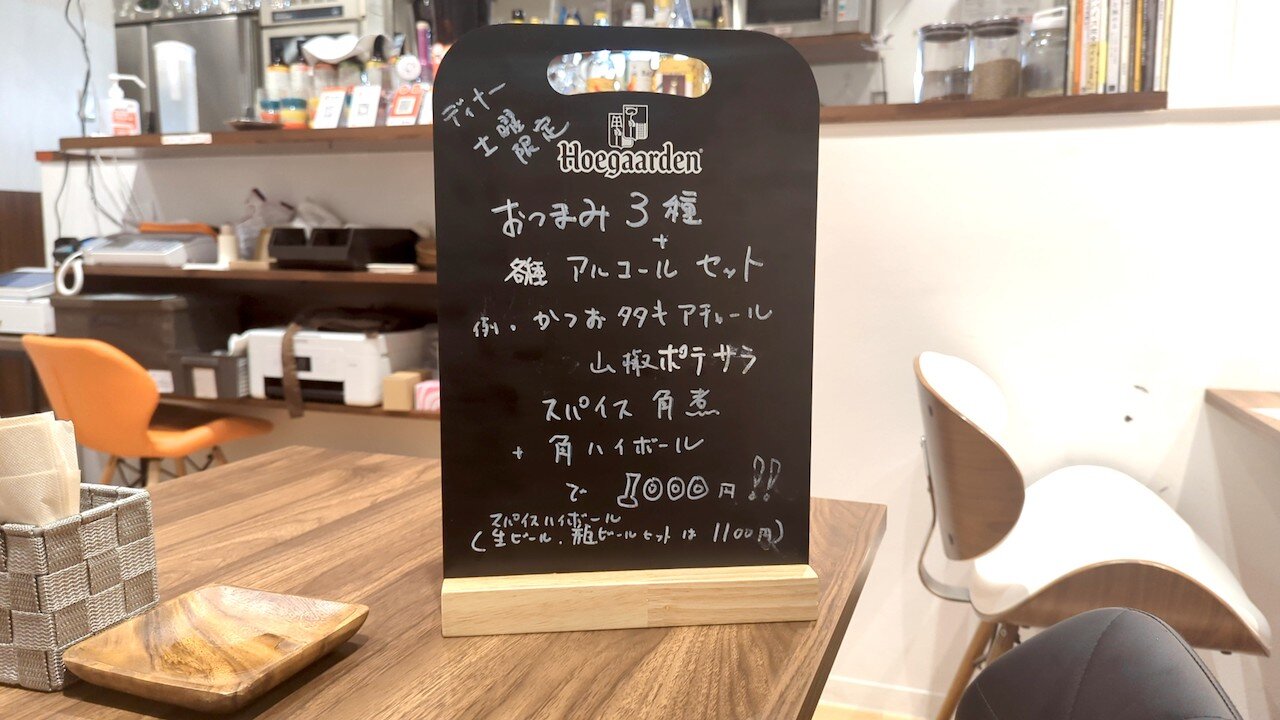 ディナー
土曜
限定
Hoegaarden
おつまみ 3種
+
各種 アルコール セット
例. かつおタタキアチャール
山椒ポテサラ
スパイス 角煮
+ 角ハイボール
で 1000円!!
スパイスハイボール
(生ビール、瓶ビールセットは 1100円)